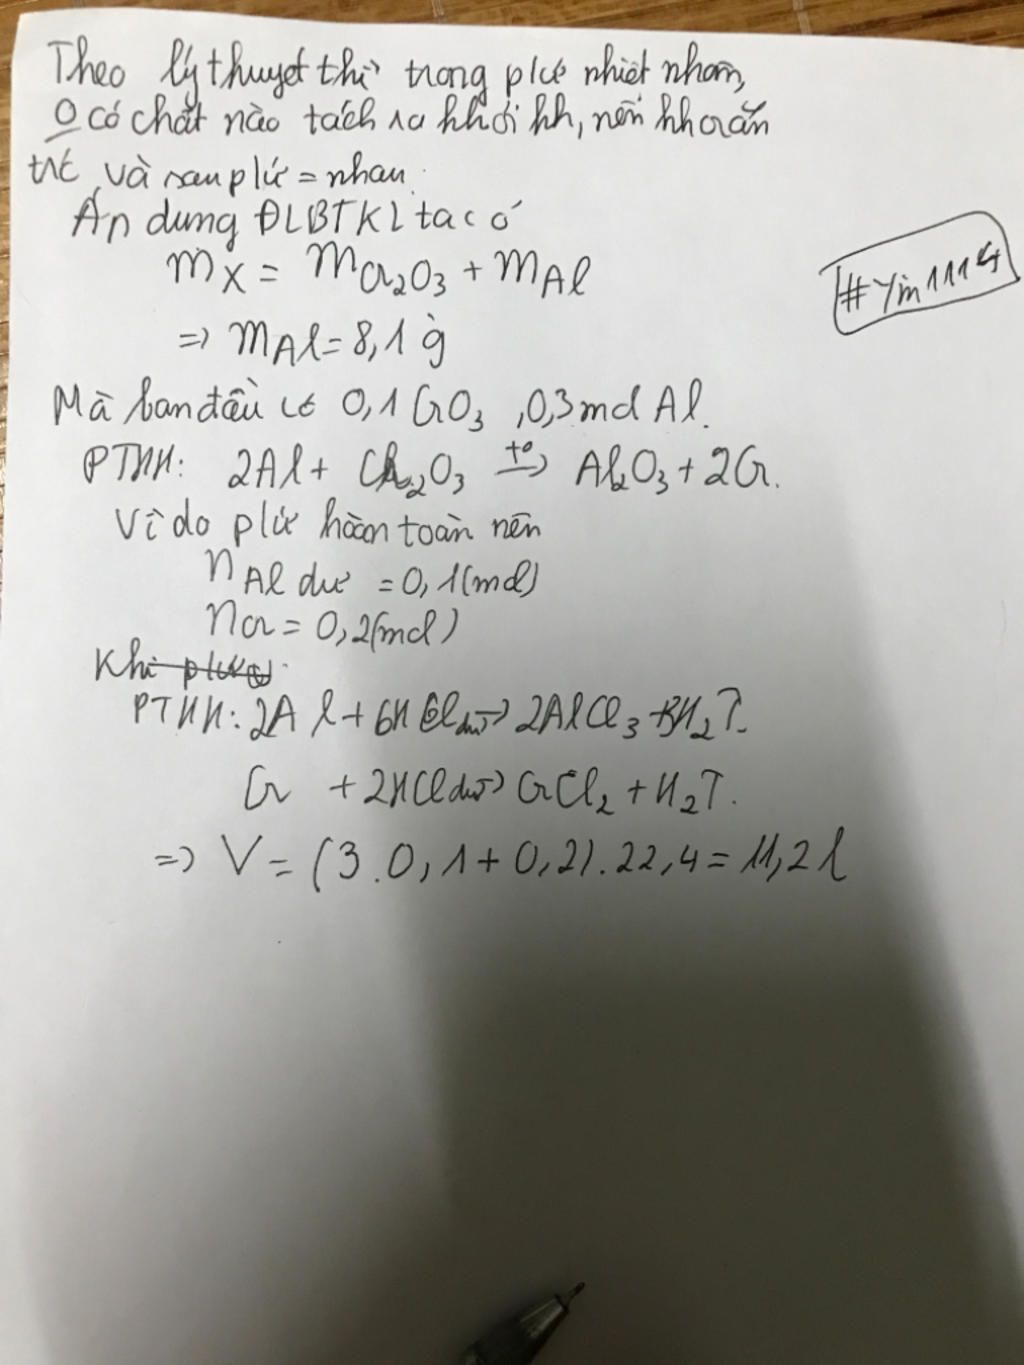 Theo lý thuyết thì trong pứ nhiệt nhôm,
0 có chất nào tách ra khỏi hh, nên hh rắn
trc và sau pứ = nhau.
Áp dụng ĐLBTKL ta có
mX = mCr2O3 + mAl
#Yin1114
=> mAl = 8,1 g
Mà ban đầu có 0,1 CrO3 , 0,3 mol Al.
PTHH: 2Al + Cr2O3 t° → Al2O3 + 2Cr.
Vì do pứ hoàn toàn nên
nAl dư = 0,1 (mol)
nCr = 0,2 (mol)
Khi
PTHH: 2Al + 6HCl dư → 2AlCl3 + 3H2↑.
Cr + 2HCl dư → CrCl2 + H2↑.
=> V = (3.0,1 + 0,2).22,4 = 11,2 l